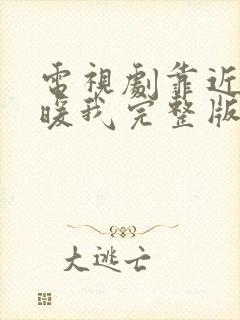 電視劇靠近
暖我完整版
大逃亡